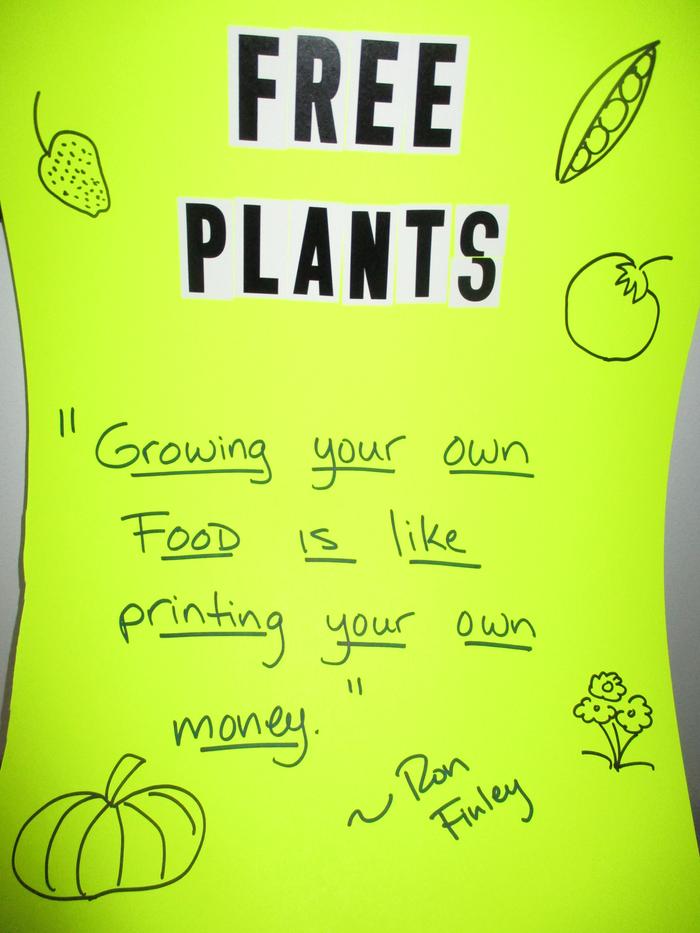 FREE
PLANTS
"Growing your own
FOOD is like
printing your own
money."
~ Ron
Finley